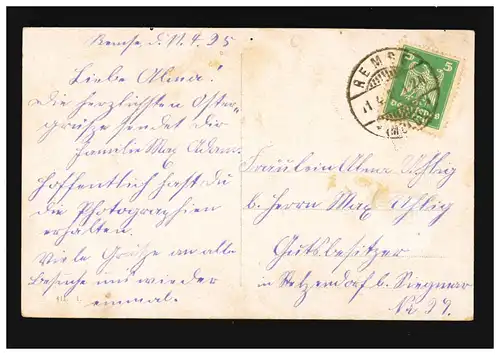 Remse, d. 11.4.25
Liebe Alma!
Die herzlichsten Oster-
grüsze sendet dir
Familie Max Adam.
Hoffentlich hast du
die Photographien
erhalten.
Viele Grüsze an alle
Besuche uns wieder
einmal.
REMSE
5 5
Deutsches
Fräulein Alma
b. Herrn Max
Gutsbesitzer
in b. Siegmar
Nr. 27.